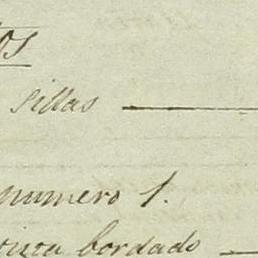 os
sillas
numero 1.
bordado